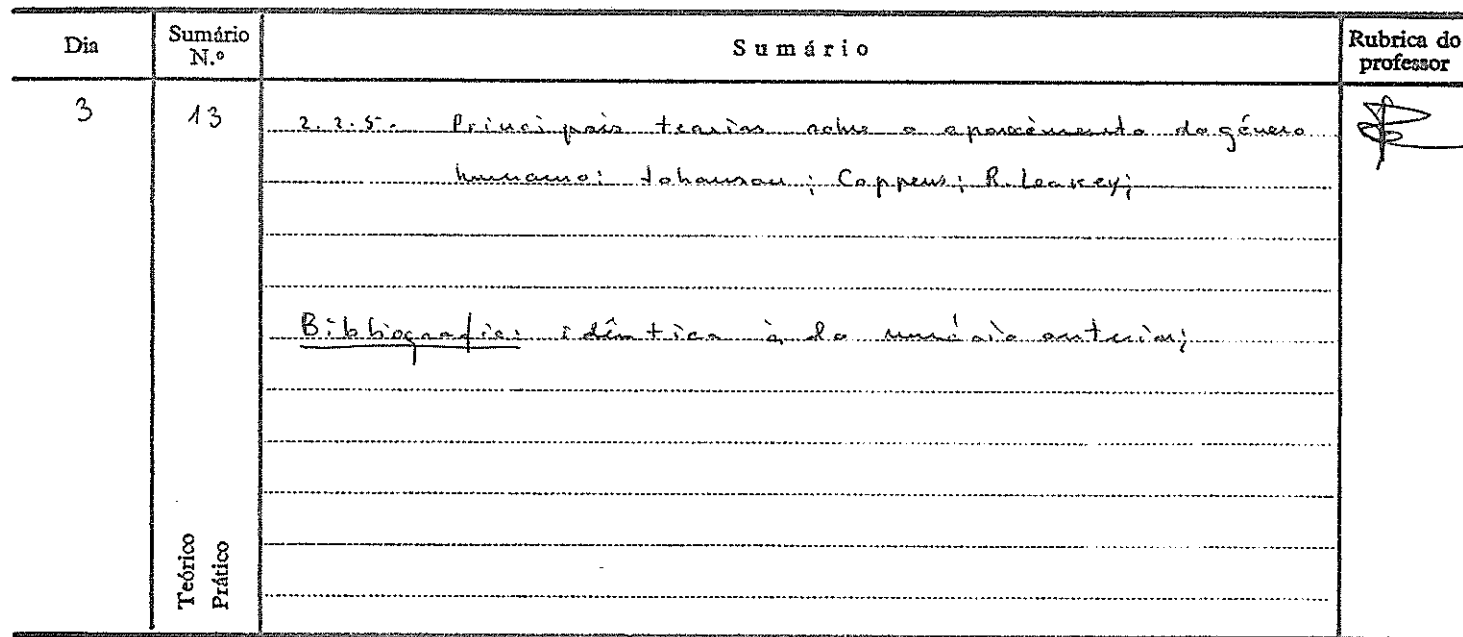 Dia
Sumário N.º
Sumário
Rubrica do professor
3
13
2.2.5. Principais teorias sobre o aparecimento do género
humano: Johanson; Coppens; R. Leakey;
Bibliografia: idêntica à do sumário anterior;
Teórico
Prático